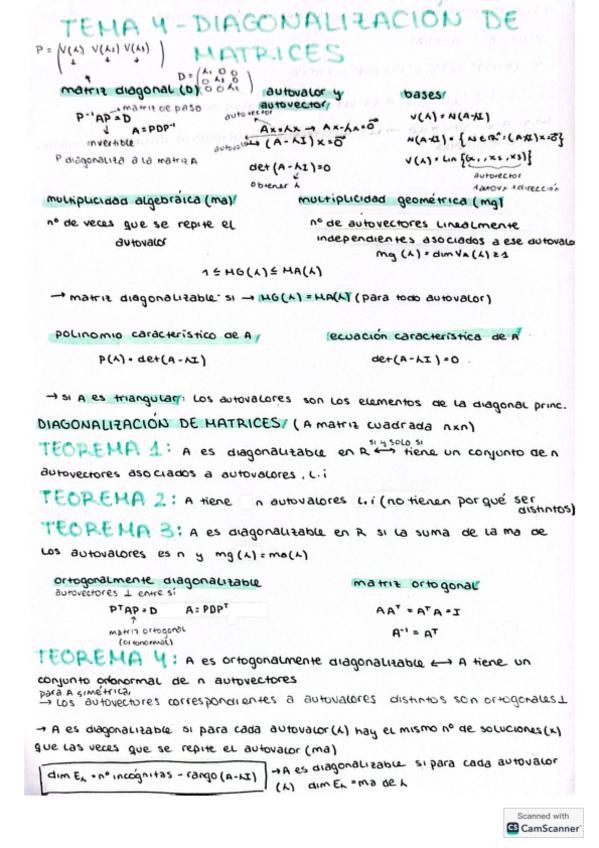 TEMA 4 - DIAGONALIZACIÓN DE
MATRICES
P = (V(λ) V(λ) V(λ))
D = (λ₁ 0 0
0 λ₂ 0
0 0 λ₃)
matriz diagonal (D)
P⁻¹AP = D
matriz de paso
A = PDP⁻¹
invertible
P diagonaliza a la matriz A
autovalor y
autovector
autovector
Ax = λx → Ax - λx = 0⃗
autovalor
(A - λI) x = 0⃗
det (A - λI) = 0
obtener λ
bases
V(λ) = N(A-λI)
V(λ) = Lin {(x₁, x₂, x₃)}
autovector
multiplicidad algebráica (ma)
nº de veces que se repite el
autovalor
multiplicidad geométrica (mg)
nº de autovectores linealmente
independientes asociados a ese autovalo
1 ≤ MG(λ) ≤ MA(λ)
→ matriz diagonalizable si → MG(λ) = MA(λ) (para todo autovalor)
polinomio característico de A
P(λ) = det (A - λI)
ecuación característica de A
det (A - λI) = 0
→ si A es triangular: los autovalores son los elementos de la diagonal princ.
DIAGONALIZACIÓN DE MATRICES / (A matriz cuadrada nxn)
si y solo si
TEOREMA 1: A es diagonalizable en R ⟷ tiene un conjunto de n
autovectores asociados a autovalores, l.i
TEOREMA 2: A tiene n autovalores l.i (no tienen por qué ser
distintos)
TEOREMA 3: A es diagonalizable en R si la suma de la ma de
los autovalores es n y mg(λ) = ma(λ)
ortogonalmente diagonalizable
autovectores ⊥ entre sí
PᵀAP = D A = PDPᵀ
matriz ortogonal
(ortonormal)
matriz ortogonal
AAᵀ = AᵀA = I
A⁻¹ = Aᵀ
TEOREMA 4: A es ortogonalmente diagonalizable ⟷ A tiene un
conjunto ortonormal de n autovectores
para A simétrica,
→ Los autovectores correspondientes a autovalores distintos son ortogonales ⊥
→ A es diagonalizable si para cada autovalor (λ) hay el mismo nº de soluciones (x)
que las veces que se repite el autovalor (ma)
dim Eλ = nº incógnitas - rango (A - λI)
→ A es diagonalizable si para cada autovalor
(λ) dim Eλ = ma de λ
Scanned with
CS CamScanner